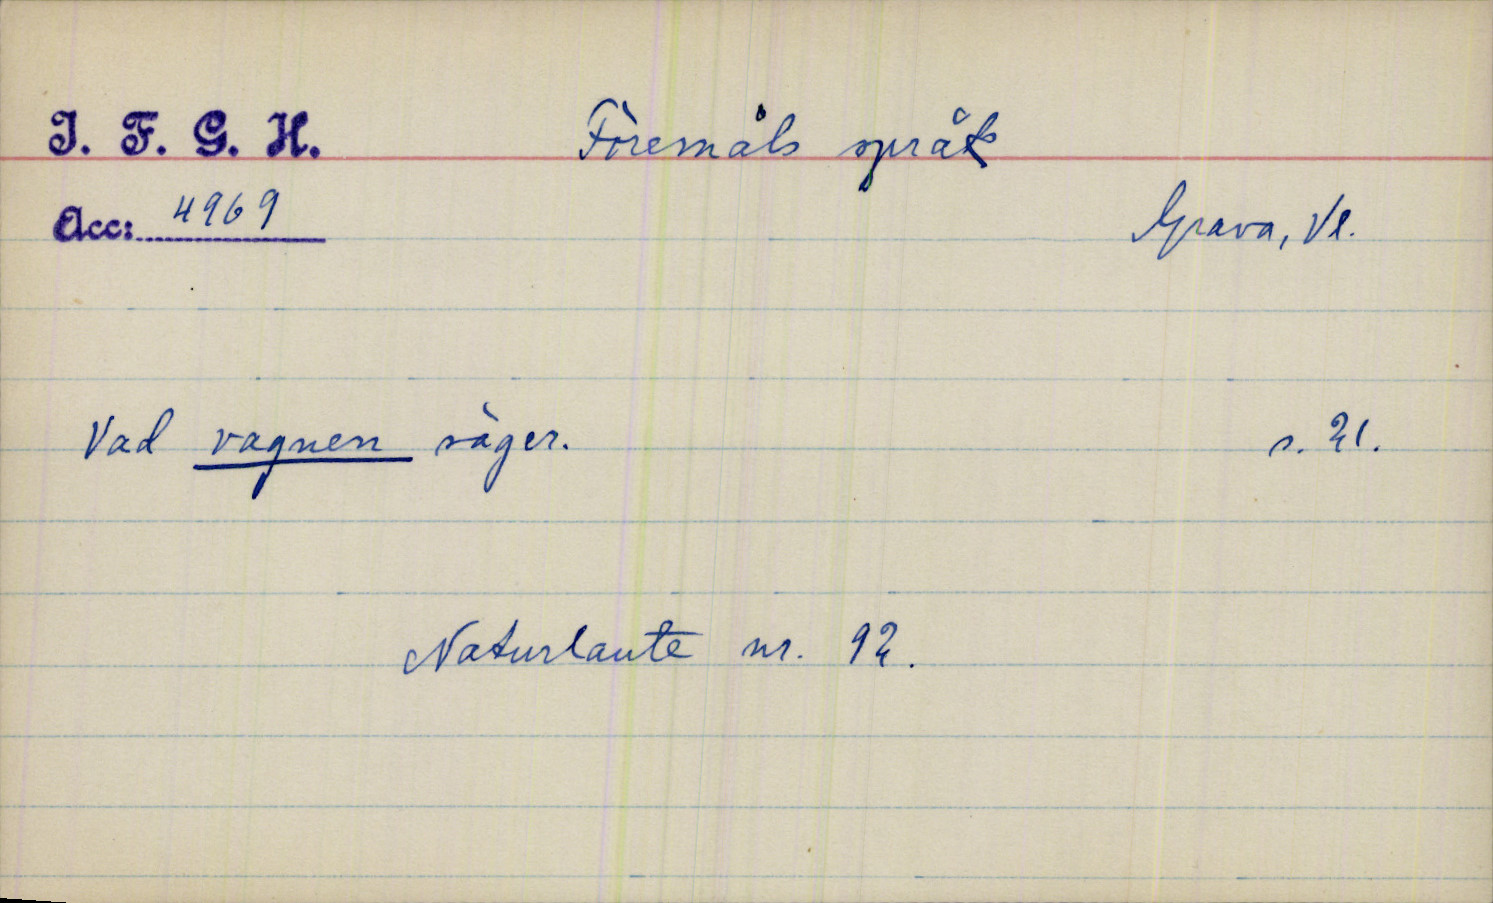 I. F. G. H.
Föremåls språk
Acc: 4969
Grava, Vl.
Vad vagnen säger. s. 21.
Naturlaute nr. 92.